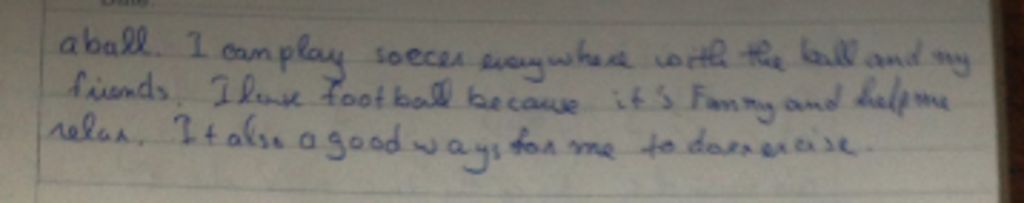 aball. I can play soccer everywhere with the ball and my
friends. I love football because it's Fanny and help me
relax. It also a good ways for me to do exercise.